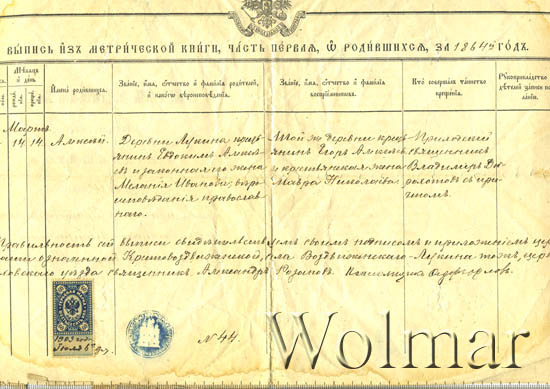 ВЫПИСЬ ИЗЪ МЕТРИЧЕСКОЙ КНИГИ, ЧАСТЬ ПЕРВАЯ, Ѡ РОДИВШИХСЯ, ЗА 1864й ГОДЪ.
Мѣсяцъ и день
Имена родившихся.
Званіе, имя, отчество и фамилія родителей, и какого вѣроисповѣданія.
Званіе, имя, отчество и фамилія воспріемниковъ.
Кто совершалъ таинство крещенія.
Рукоприкладство
Марта
14 14
Алексѣй
Деревни Лукина кресть
янинъ Евдокимъ Алексѣ
въ и законная его жена
Меланія Иванова; вѣро
исповѣданія православ
наго.
той же деревни крест
янинъ Егоръ Алексѣевъ
и крестьянская жена
Мавра Николаева
Приходскій
священникъ
Владимиръ
съ при
чтомъ.
выписи свидѣтельств
своимъ подписомъ и приложеніемъ цер
Крестовоздвиженской,
Воздвиженского Лукина тожъ, церк
уѣзда священникъ Александръ Розановъ.
1903 год
№ 44.
Wolmar